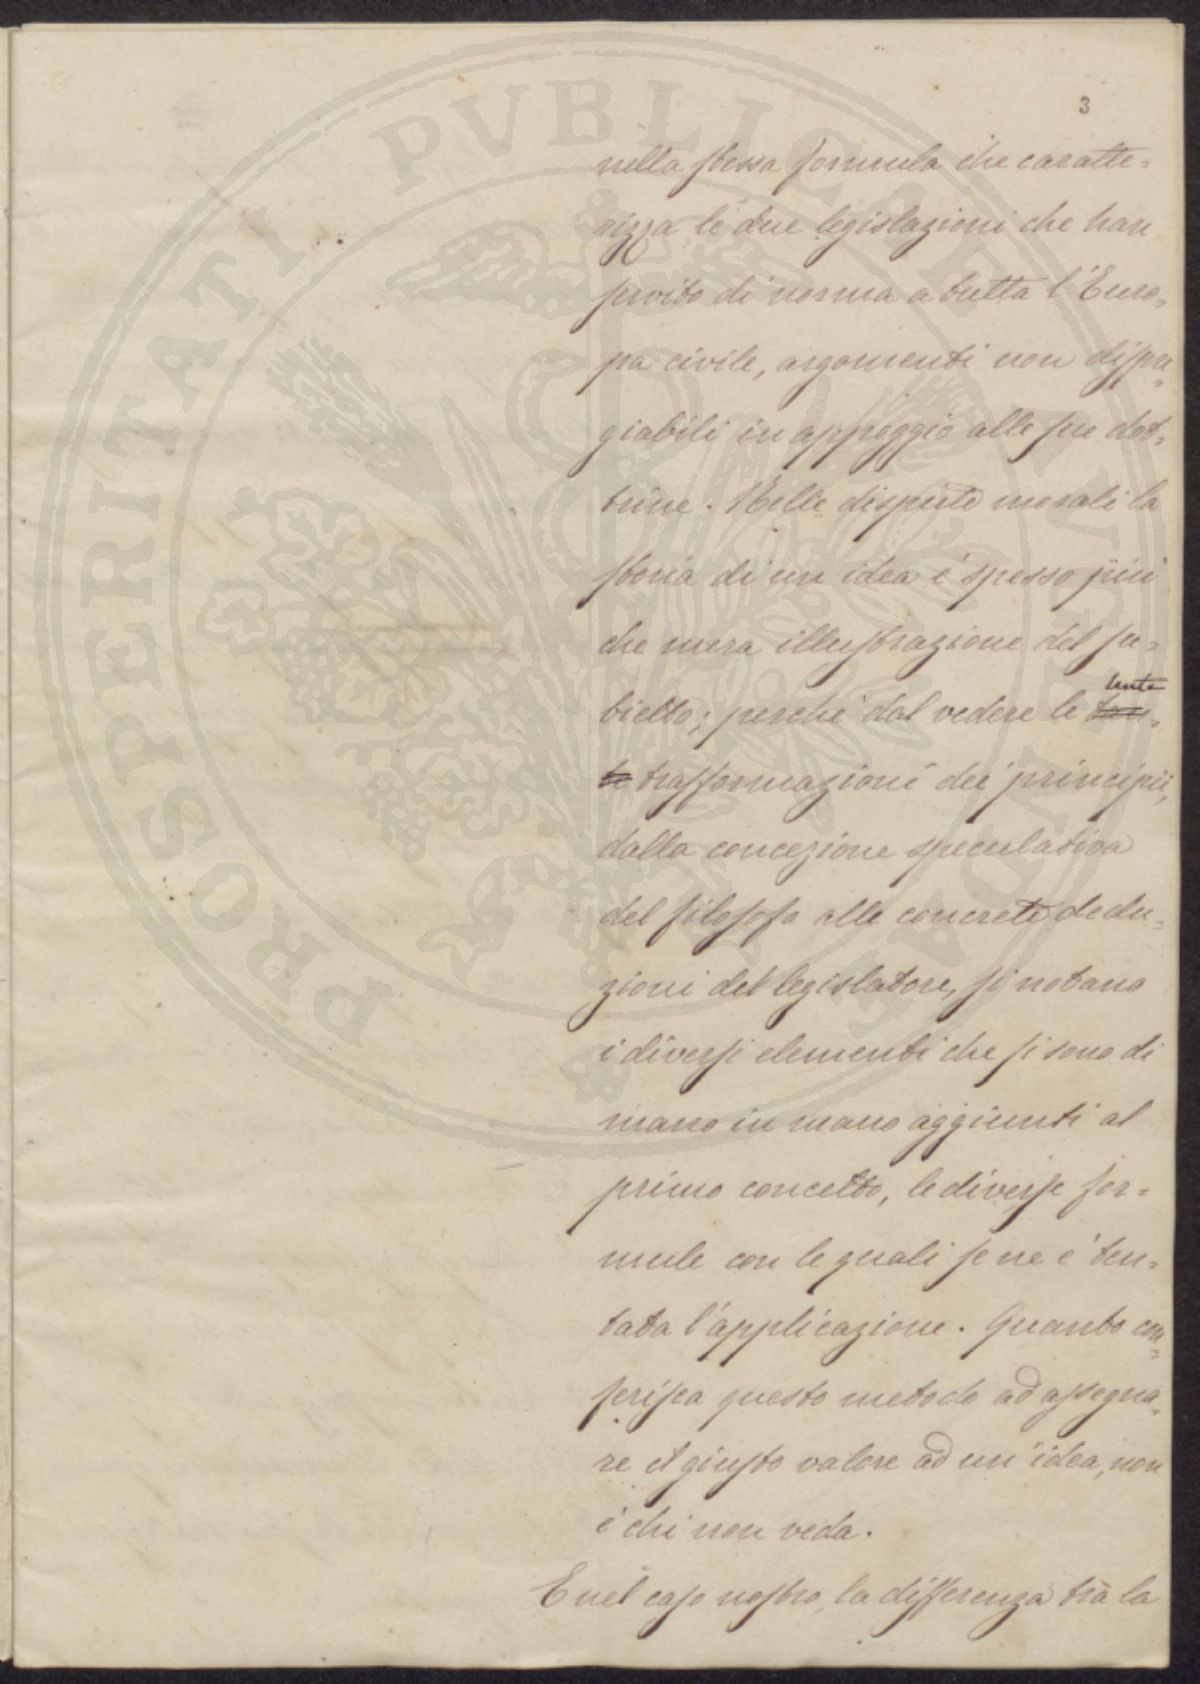 3
nella stessa formula che caratte=
rizza le due legislazioni che han
servito di norma a tutta l'Euro=
pa civile, argomenti non dispre=
giabili in appoggio alle sue dot=
trine. Nelle dispute morali la
storia di un idea è spesso più
che mera illustrazione del su=
bietto; perchè dal vedere le lente
trasformazioni dei principii,
dalla concezione speculativa
del filosofo alle concrete dedu=
zioni del legislatore, si notano
i diversi elementi che si sono di
mano in mano aggiunti al
primo concetto, le diverse for=
mule con le quali se ne è ten=
tata l'applicazione. Quanto con=
ferisca questo metodo ad assegna=
re il giusto valore ad un'idea, non
è chi non veda.
E nel caso nostro, la differenza tra la
PROSPERITATI PVBLICAE AVGENDAE